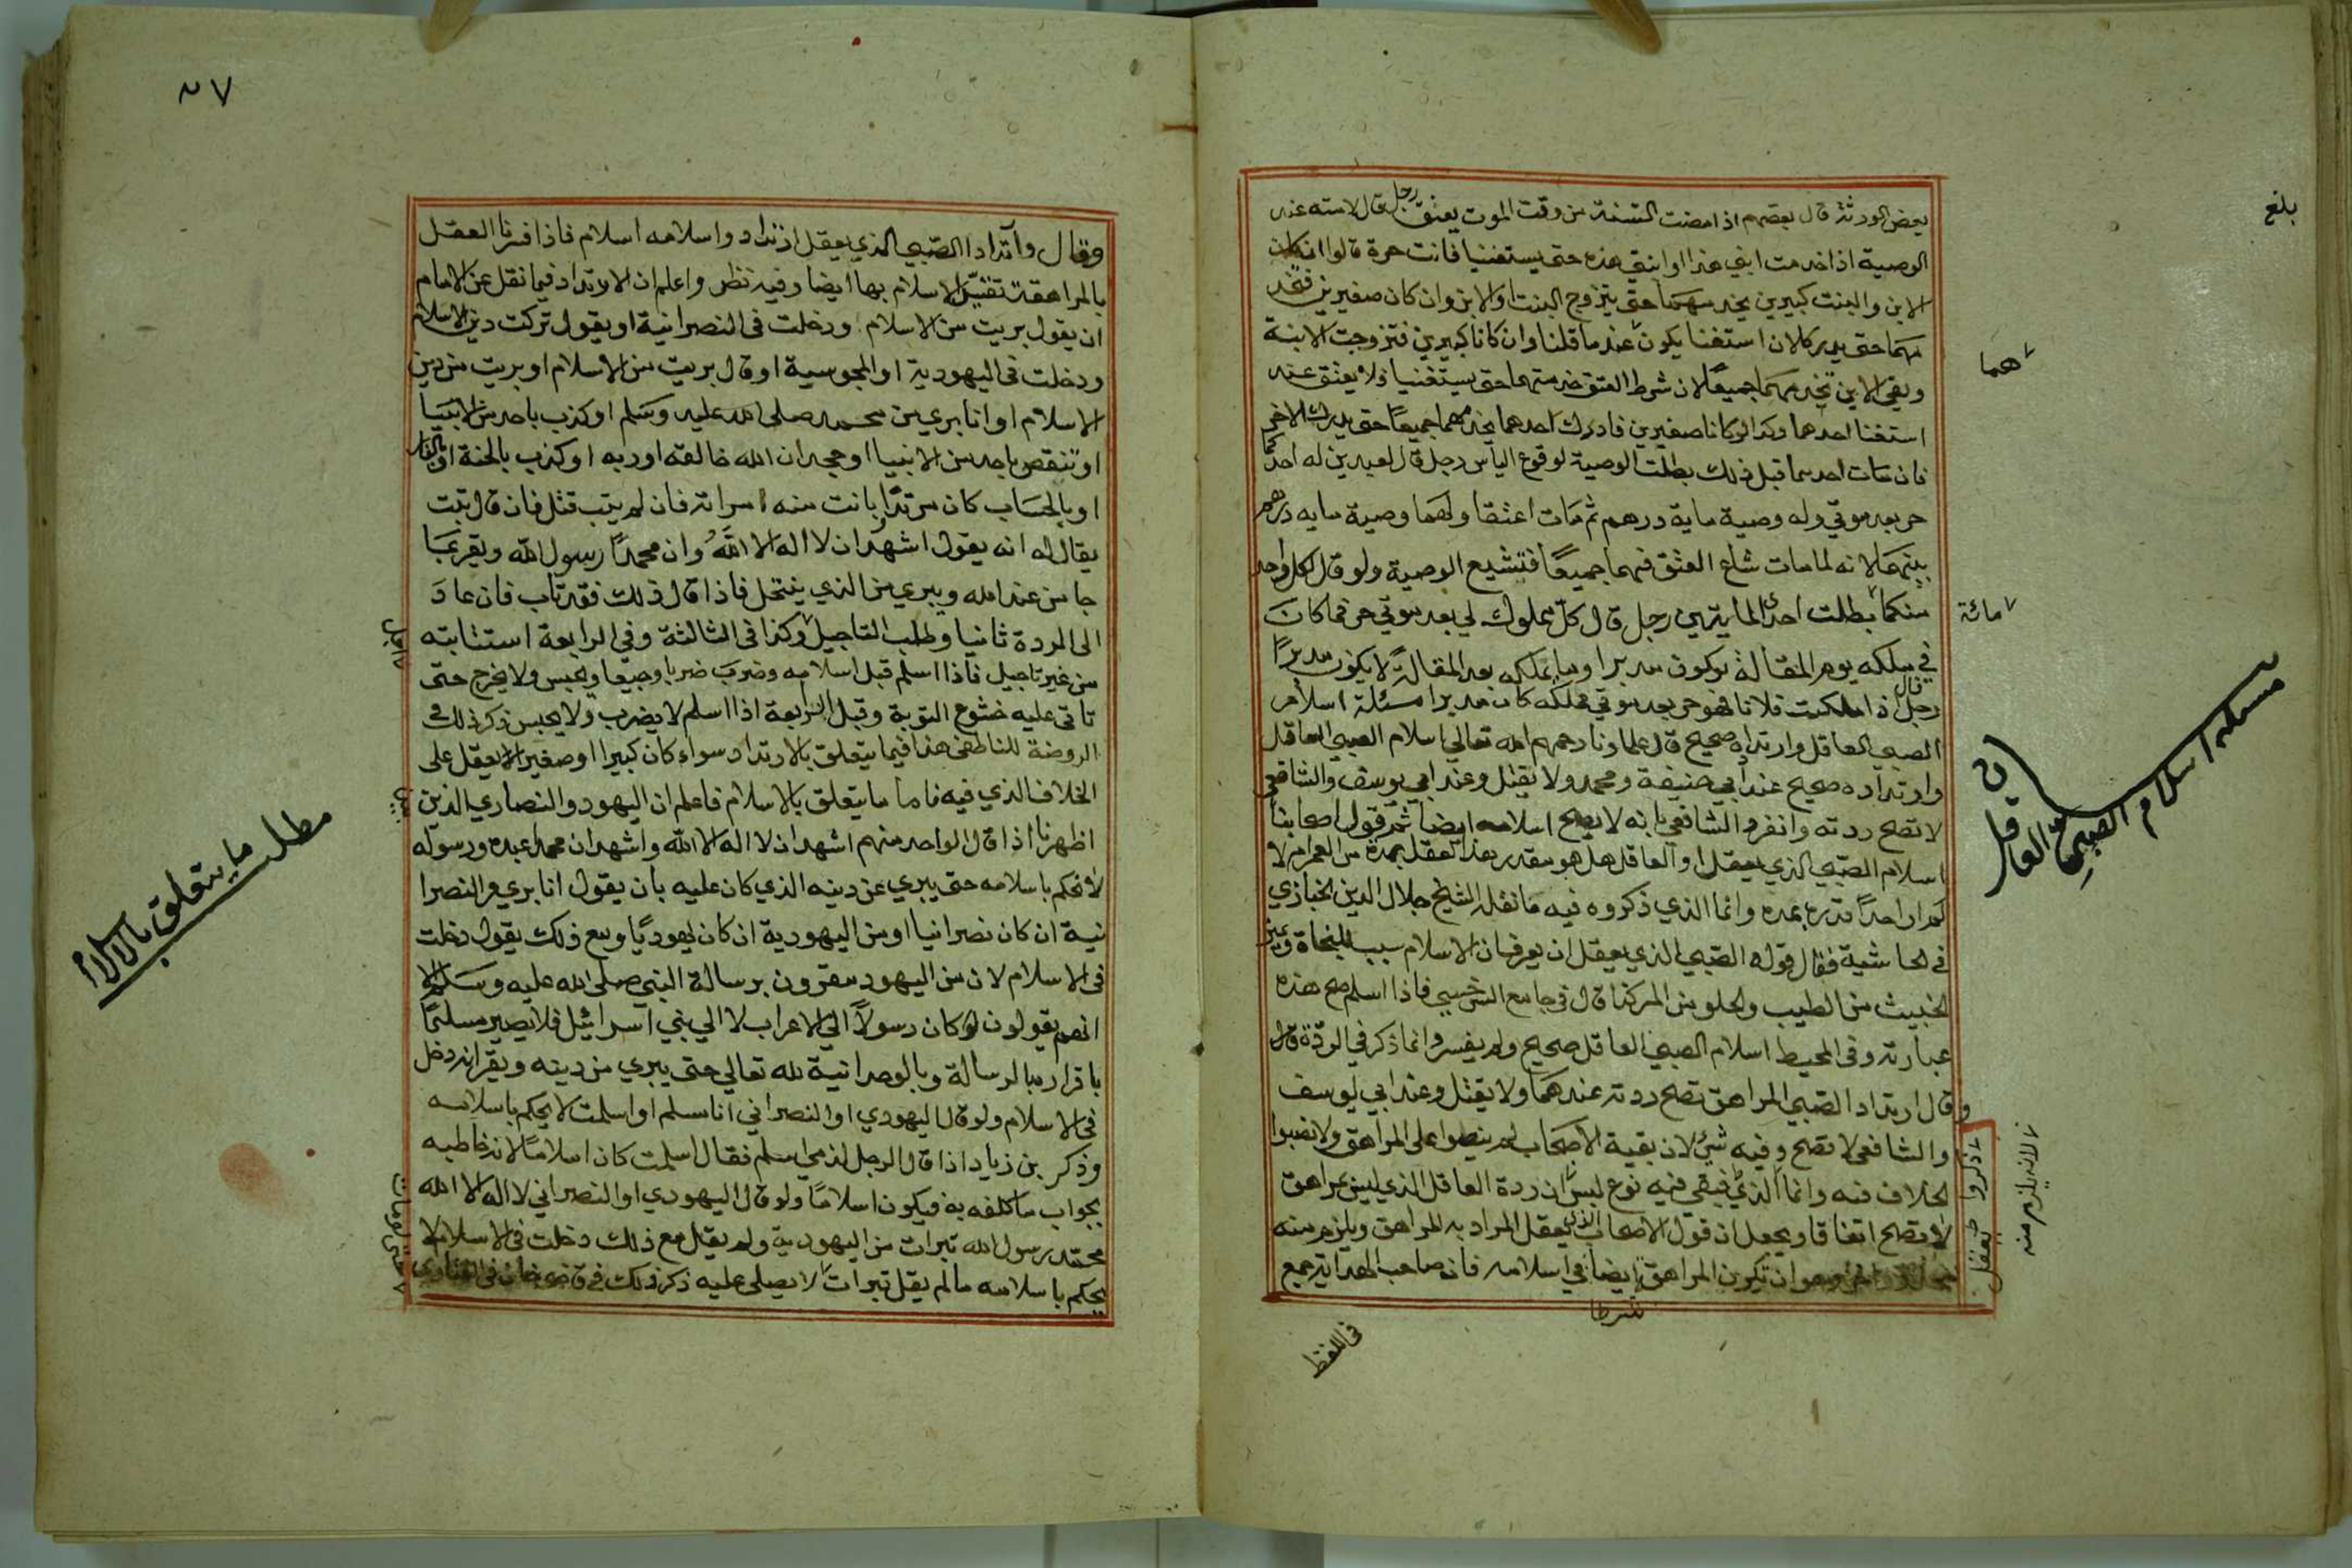 بلغ
بعض الورثة قال بعضهم اذا مضت السنة من وقت الموت يعتق رجل قال لامته عند
الوصية اذا خدمت ابني هذا او ابنتي هذه حتى يستغنيا فانت حرة قالوا ان كان
الابن والبنت كبيرين يخدمهما حتى يتزوج البنت او الابن وان كان صغيرين فتخد
مهما حتى يدركا لان استغنا يكون عند ما قلنا وان كانا كبيرين فتزوجت الابنة
وبقي الابن تخدمهما جميعا لان شرط العتق خدمتهما حتى يستغنيا فلا يعتق عند
استغنا احدهما وكذا لو كانا صغيرين فادرك احدهما يخدمهما جميعا حتى يدرك الاخر
فان مات احدهما قبل ذلك بطلت الوصية لوقوع الياس رجل قال لعبدين له احدكما
حر بعد موتي وله وصية ماية درهم ثم مات اعتقا ولهما وصية مايه درهم
بينهما لانه لما مات شاع العتق فيهما جميعا فتشيع الوصية ولو قال لكل واحد
منكما بطلت احدى المايتين رجل قال كل مملوك لي بعد موتي حر فما كان
في ملكه يوم المقالة يكون مدبرا وما يملكه بعد المقالة لا يكون مدبرا
رجل قال اذا ملكت فلانا فهو حر بعد موتي فملكه كان مدبرا مسئلة اسلام
الصبي العاقل وارتداده صحيح قال علماونا رحمهم الله تعالى اسلام الصبي العاقل
وارتداده صحيح عند ابي حنيفة ومحمد ولا يقتل وعند ابي يوسف والشافعي
لا تصح ردته وانفرد الشافعي بانه لا يصح اسلامه ايضا ثم قول اصحابنا
اسلام الصبي الذي يعقل او العاقل هل هو مقدر هذا العقل بمدة من العمر ام لا
لم ار احدا قدره بمدة وانما الذي ذكروه فيه ما نقله الشيخ جلال الدين الخبازي
في الحاشية فقال قوله الصبي الذي يعقل ان يعرف ان الاسلام سبب للنجاة ويميز
الخبيث من الطيب والحلو من المر كذا قال في جامع السرخسي فاذا اسلم صح هذه
عبارته وفي المحيط اسلام الصبي العاقل صحيح ولم يفسر وانما ذكر في الردة قال
وقال ارتداد الصبي المراهق تصح ردته عندهما ولا يقتل وعند ابي يوسف
والشافعي لا تصح وفيه شئ لان بقية الاصحاب لم ينصوا على المراهق ولا نصبوا
الخلاف فيه وانما الذي فبقي فيه نوع لبس ان ردة العاقل الذي ليس بمراهق
لا تصح اتفاقا ويجعل ان قول الاصحاب الذي يعقل المراد به المراهق ويلزم منه
وهو ان تكون المراهق ايضا في اسلامه فان صاحب الهداية جمع
هما
مائة
مسئلة اسلام الصبي العاقل
ذكروا يعقل
لانه يلزم منه
شرطا
في اللفظ
٥٧
وقال وارتداد الصبي الذي يعقل ارتداد واسلامه اسلام فاذا فسرنا العقل
بالمراهقة تقيد الاسلام بها ايضا وفيه نظر واعلم ان الارتداد فيما نقل عن الامام
ان يقول بريت من الاسلام ودخلت في النصرانية او يقول تركت دين الاسلام
ودخلت في اليهودية او المجوسية او قال بريت من الاسلام او بريت من دين
الاسلام او انا بري من محمد صلى الله عليه وسلم او كذب باحد من الانبيا
او تنقص باحد من الانبيا او جحد ان الله خالقه او ربه او كذب بالجنة او بالنار
او بالحساب كان مرتدا بانت منه امراته فان لم يتب قتل فان قال تبت
يقال له انه يقول اشهد ان لا اله الا الله وان محمدا رسول الله ويقر بما
جا من عند الله ويبري من الذي ينتحل فاذا قال ذلك فقد تاب فان عاد
الى الردة ثانيا وطلب التاجيل وكذا في الثالثة وفي الرابعة استتابته
من غير تاجيل فاذا اسلم قبل اسلامه وضرب ضربا وجيعا ويحبس ولا يخرج حتى
تاتي عليه خشوع التوبة وقبل الرابعة اذا اسلم لا يضرب ولا يحبس ذكر ذلك في
الروضة للناطفي هذا فيما يتعلق بالارتداد سواء كان كبيرا او صغيرا لا يعقل على
الخلاف الذي فيه فاما ما يتعلق بالاسلام فاعلم ان اليهود والنصارى الذين
اظهرنا اذا قال الواحد منهم اشهد ان لا اله الا الله واشهد ان محمدا عبده ورسوله
لا نحكم باسلامه حتى يبري عن دينه الذي كان عليه بان يقول انا بري من النصرا
نية ان كان نصرانيا او من اليهودية ان كان يهوديا ومع ذلك يقول دخلت
في الاسلام لان من اليهود مقرون برسالة النبي صلى الله عليه وسلم الا
انهم يقولون كان رسولا الى الاعراب لا الى بني اسرائيل فلا يصير مسلما
باقراره بالرسالة وبالوحدانية لله تعالى حتى يبري من دينه ويقر انه دخل
في الاسلام ولو قال اليهودي او النصراني انا مسلم او اسلمت لا يحكم باسلامه
وذكر بن زياد اذا قال الرجل لذمي اسلم فقال اسلمت كان اسلاما لانه خاطبه
بجواب ما كلفه به فيكون اسلاما ولو قال اليهودي او النصراني لا اله الا الله
محمد رسول الله تبرات من اليهودية ولم يقل مع ذلك دخلت في الاسلام لا
يحكم باسلامه ما لم يقل تبرات لا يصلى عليه ذكر ذلك في قاضي خان في الفتاوى
اجل
بين
حتى لو مات
مطلب ما يتعلق بالاسلام